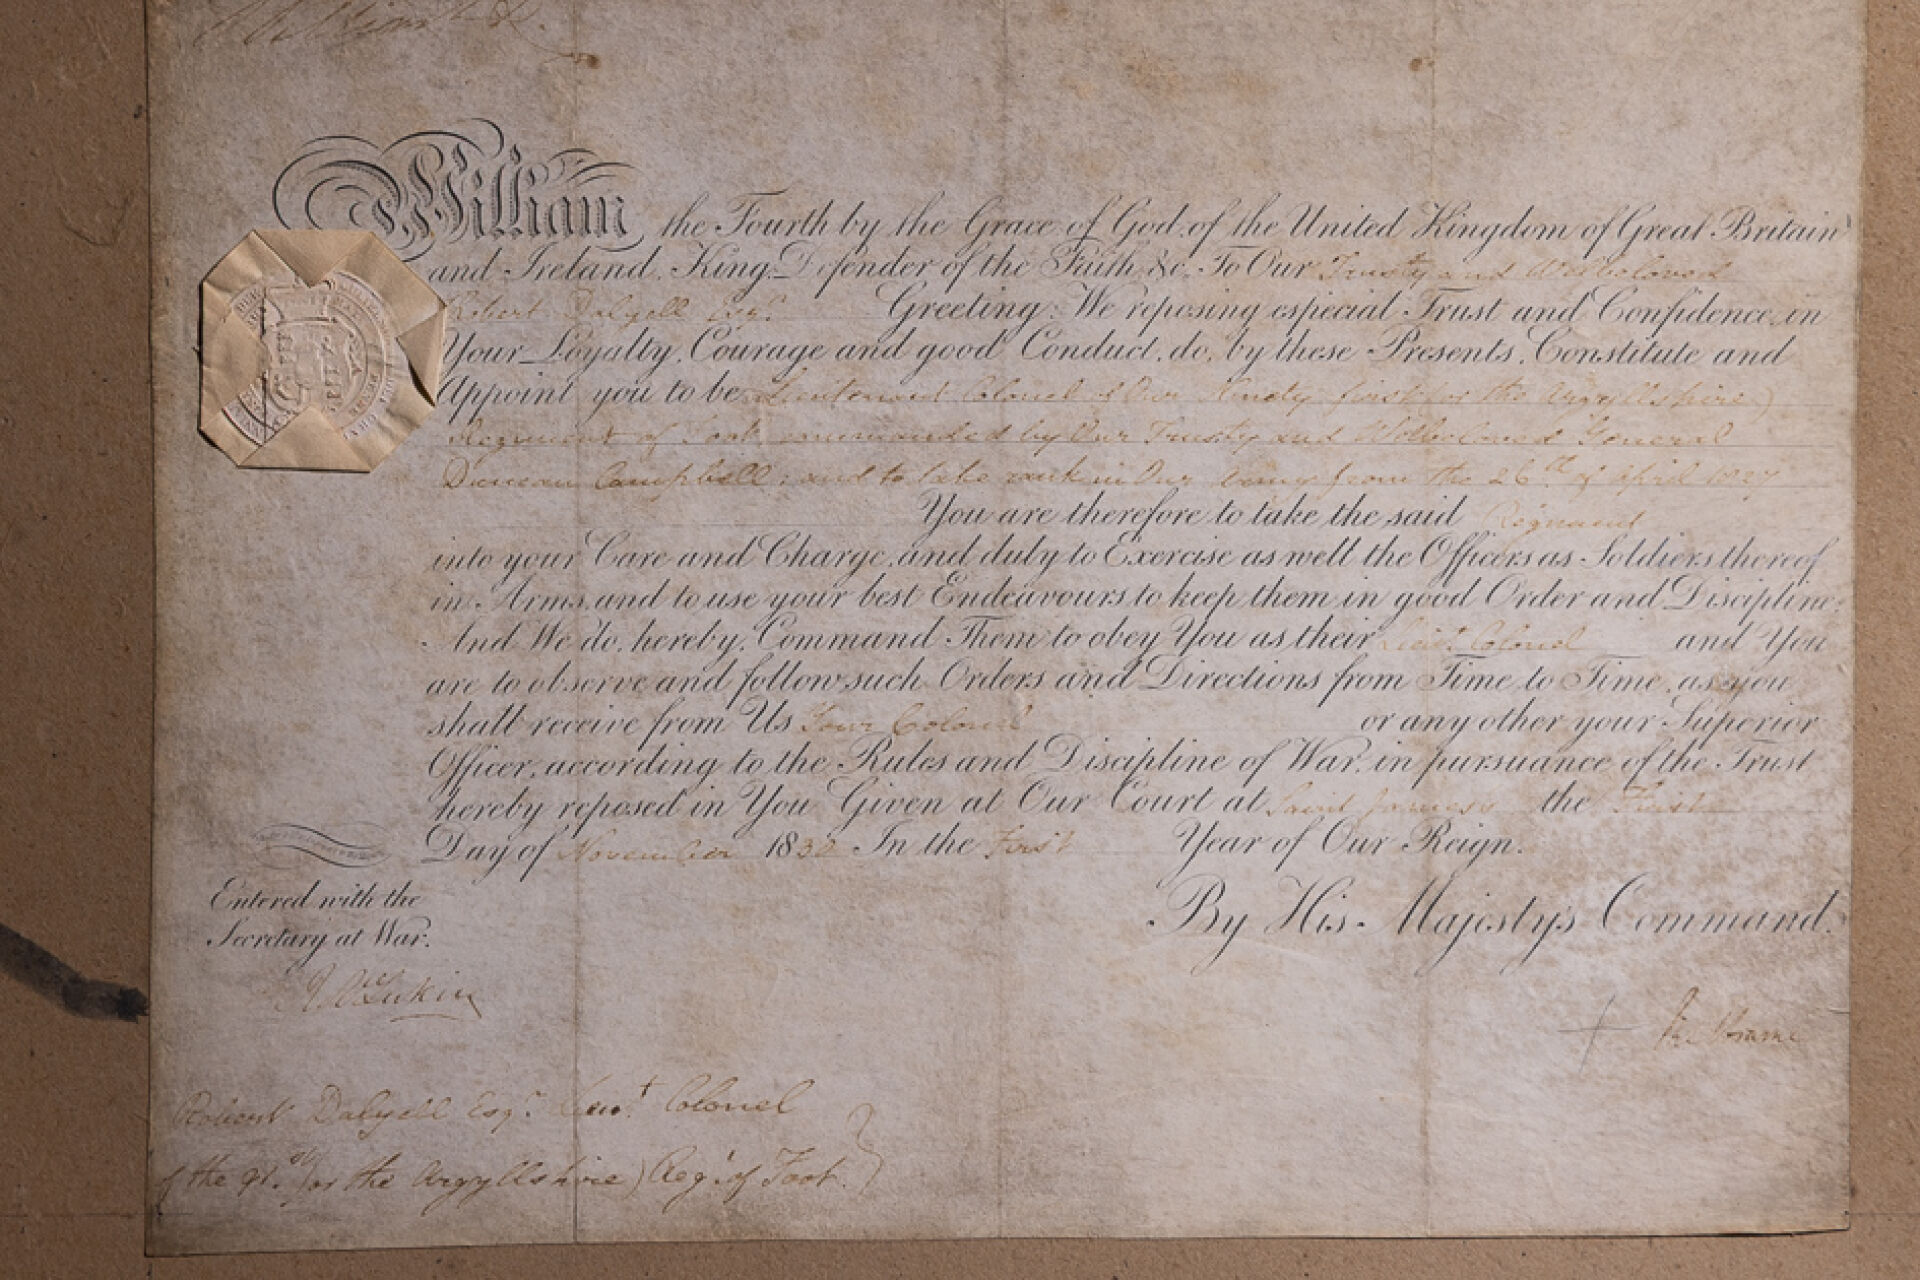 William R.
William the Fourth by the Grace of God, of the United Kingdom of Great Britain
and Ireland, King, Defender of the Faith &c. To Our Trusty and Welbeloved
Robert Dalyell Esqr. Greeting: We reposing especial Trust and Confidence, in
Your Loyalty, Courage and good Conduct, do, by these Presents, Constitute and
Appoint you to be Lieutenant Colonel of Our Ninety first (or the Argyllshire)
Regiment of Foot commanded by Our Trusty and Welbeloved General
Duncan Campbell; and to take rank in Our Army from the 26th of April 1827
You are therefore to take the said Regiment
into your Care and Charge, and duly to Exercise as well the Officers as Soldiers thereof
in Arms, and to use your best Endeavours to keep them in good Order and Discipline;
And We do, hereby, Command Them to obey You as their Lieut. Colonel and You
are to observe and follow such Orders and Directions from Time to Time, as you
shall receive from Us Your Colonel or any other your Superior
Officer, according to the Rules and Discipline of War, in pursuance of the Trust
hereby reposed in You Given at Our Court at Saint James's the First
Day of November 1830 In the First Year of Our Reign.
Entered with the
Secretary at War.
By His Majesty's Command.
Lukin
Robert Dalyell Esqr. Lieut. Colonel
of the 91st (or the Argyllshire) Regt. of Foot.